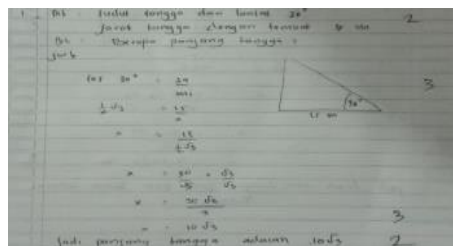 1. Dit : Sudut tangga dan lantai 30° 2
Jarak tangga dengan tembok 15 m
Dit : Berapa panjang tangga ?
Jwb
cos 30° = sa/mi 3
1/2 √3 = 15/x
30°
15 m
x = 15/(1/2 √3)
x = 30/√3 × √3/√3
x = 30 √3/3
= 10 √3 3
Jadi panjang tangga adalah 10√3 2